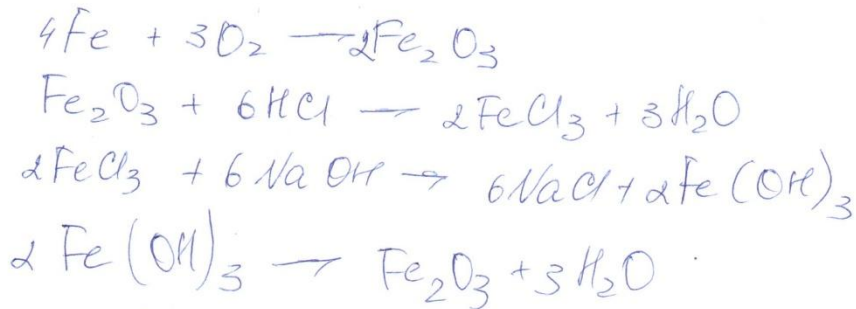 4Fe + 3O₂ — 2Fe₂O₃
Fe₂O₃ + 6HCl — 2FeCl₃ + 3H₂O
2FeCl₃ + 6NaOH → 6NaCl + 2Fe(OH)₃
2Fe(OH)₃ → Fe₂O₃ + 3H₂O